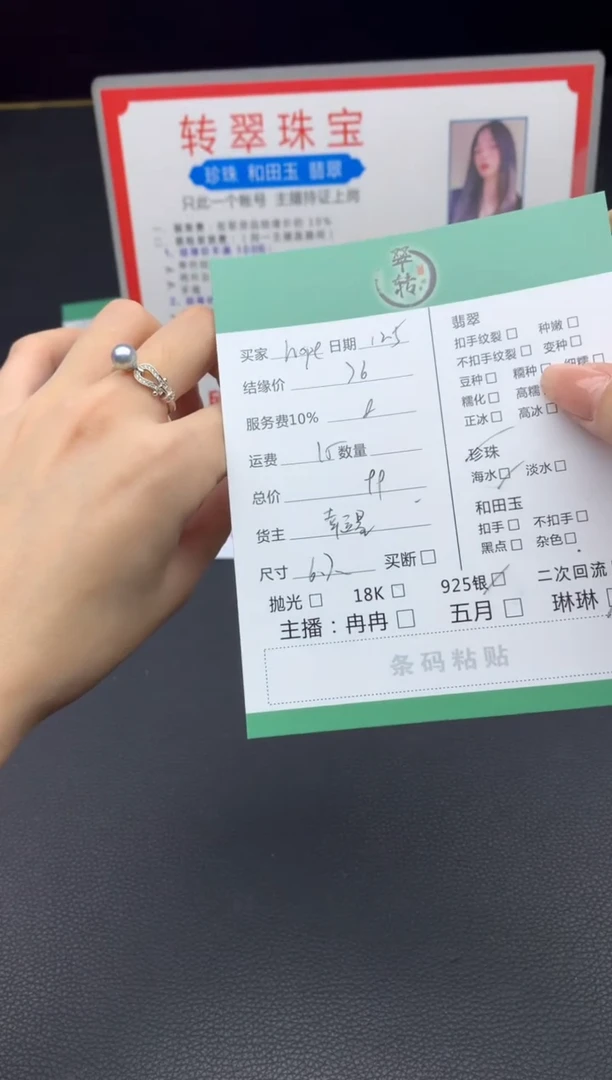 转翠珠宝
珍珠 和田玉 翡翠
只此一个账号 主播持证上岗
驿转
买家 hope 日期 12.5
结缘价 76
服务费10% 8
运费 15 数量
总价 99
货主
尺寸 买断
抛光 18K 925银 二次回流
主播：冉冉 五月 琳琳
条码粘贴
翡翠
扣手纹裂 种嫩
不扣手纹裂 变种
豆种 糯种 细糯
糯化 高糯
正冰 高冰
珍珠
海水 淡水
和田玉
扣手 不扣手
黑点 杂色